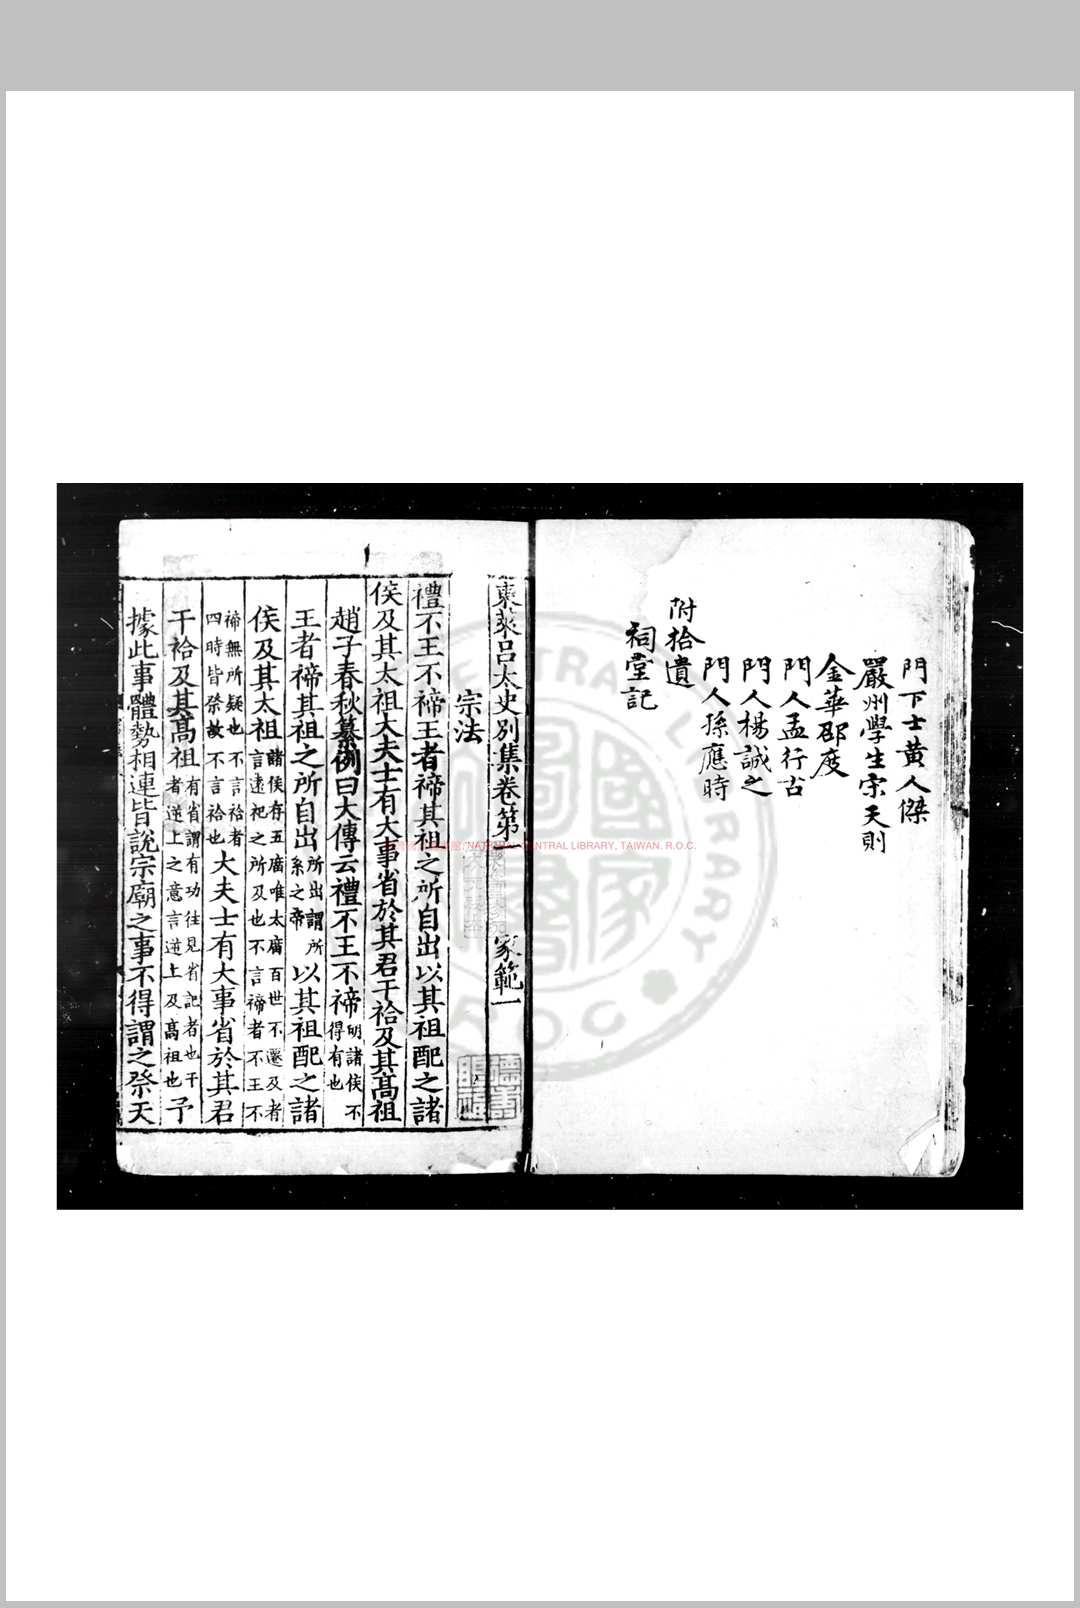 門下士黄人傑
嚴州學生宋天則
金華邵度
門人孟行古
門人楊誠之
門人孫應時
附拾遺
祠堂記
東萊呂太史別集卷第一 家範一
宗法
禮不王不禘王者禘其祖之所自出以其祖配之諸
侯及其太祖大夫士有大事省於其君干祫及其髙祖
趙子春秋纂例曰大傳云禮不王不禘明諸侯不得有也
王者禘其祖之所自出所出謂所系之帝以其祖配之諸
侯及其太祖諸侯存五廟唯太廟百世不遷及者言逺祀之所及也不言禘者不王不
禘無所疑也不言祫者四時皆祭故不言祫也大夫士有大事省於其君
干祫及其髙祖有省謂有功往見省記者也干者逆上之意言逆上及髙祖也予
據此事體勢相連皆說宗廟之事不得謂之祭天
NATIONAL CENTRAL LIBRARY, TAIWAN. R.O.C.